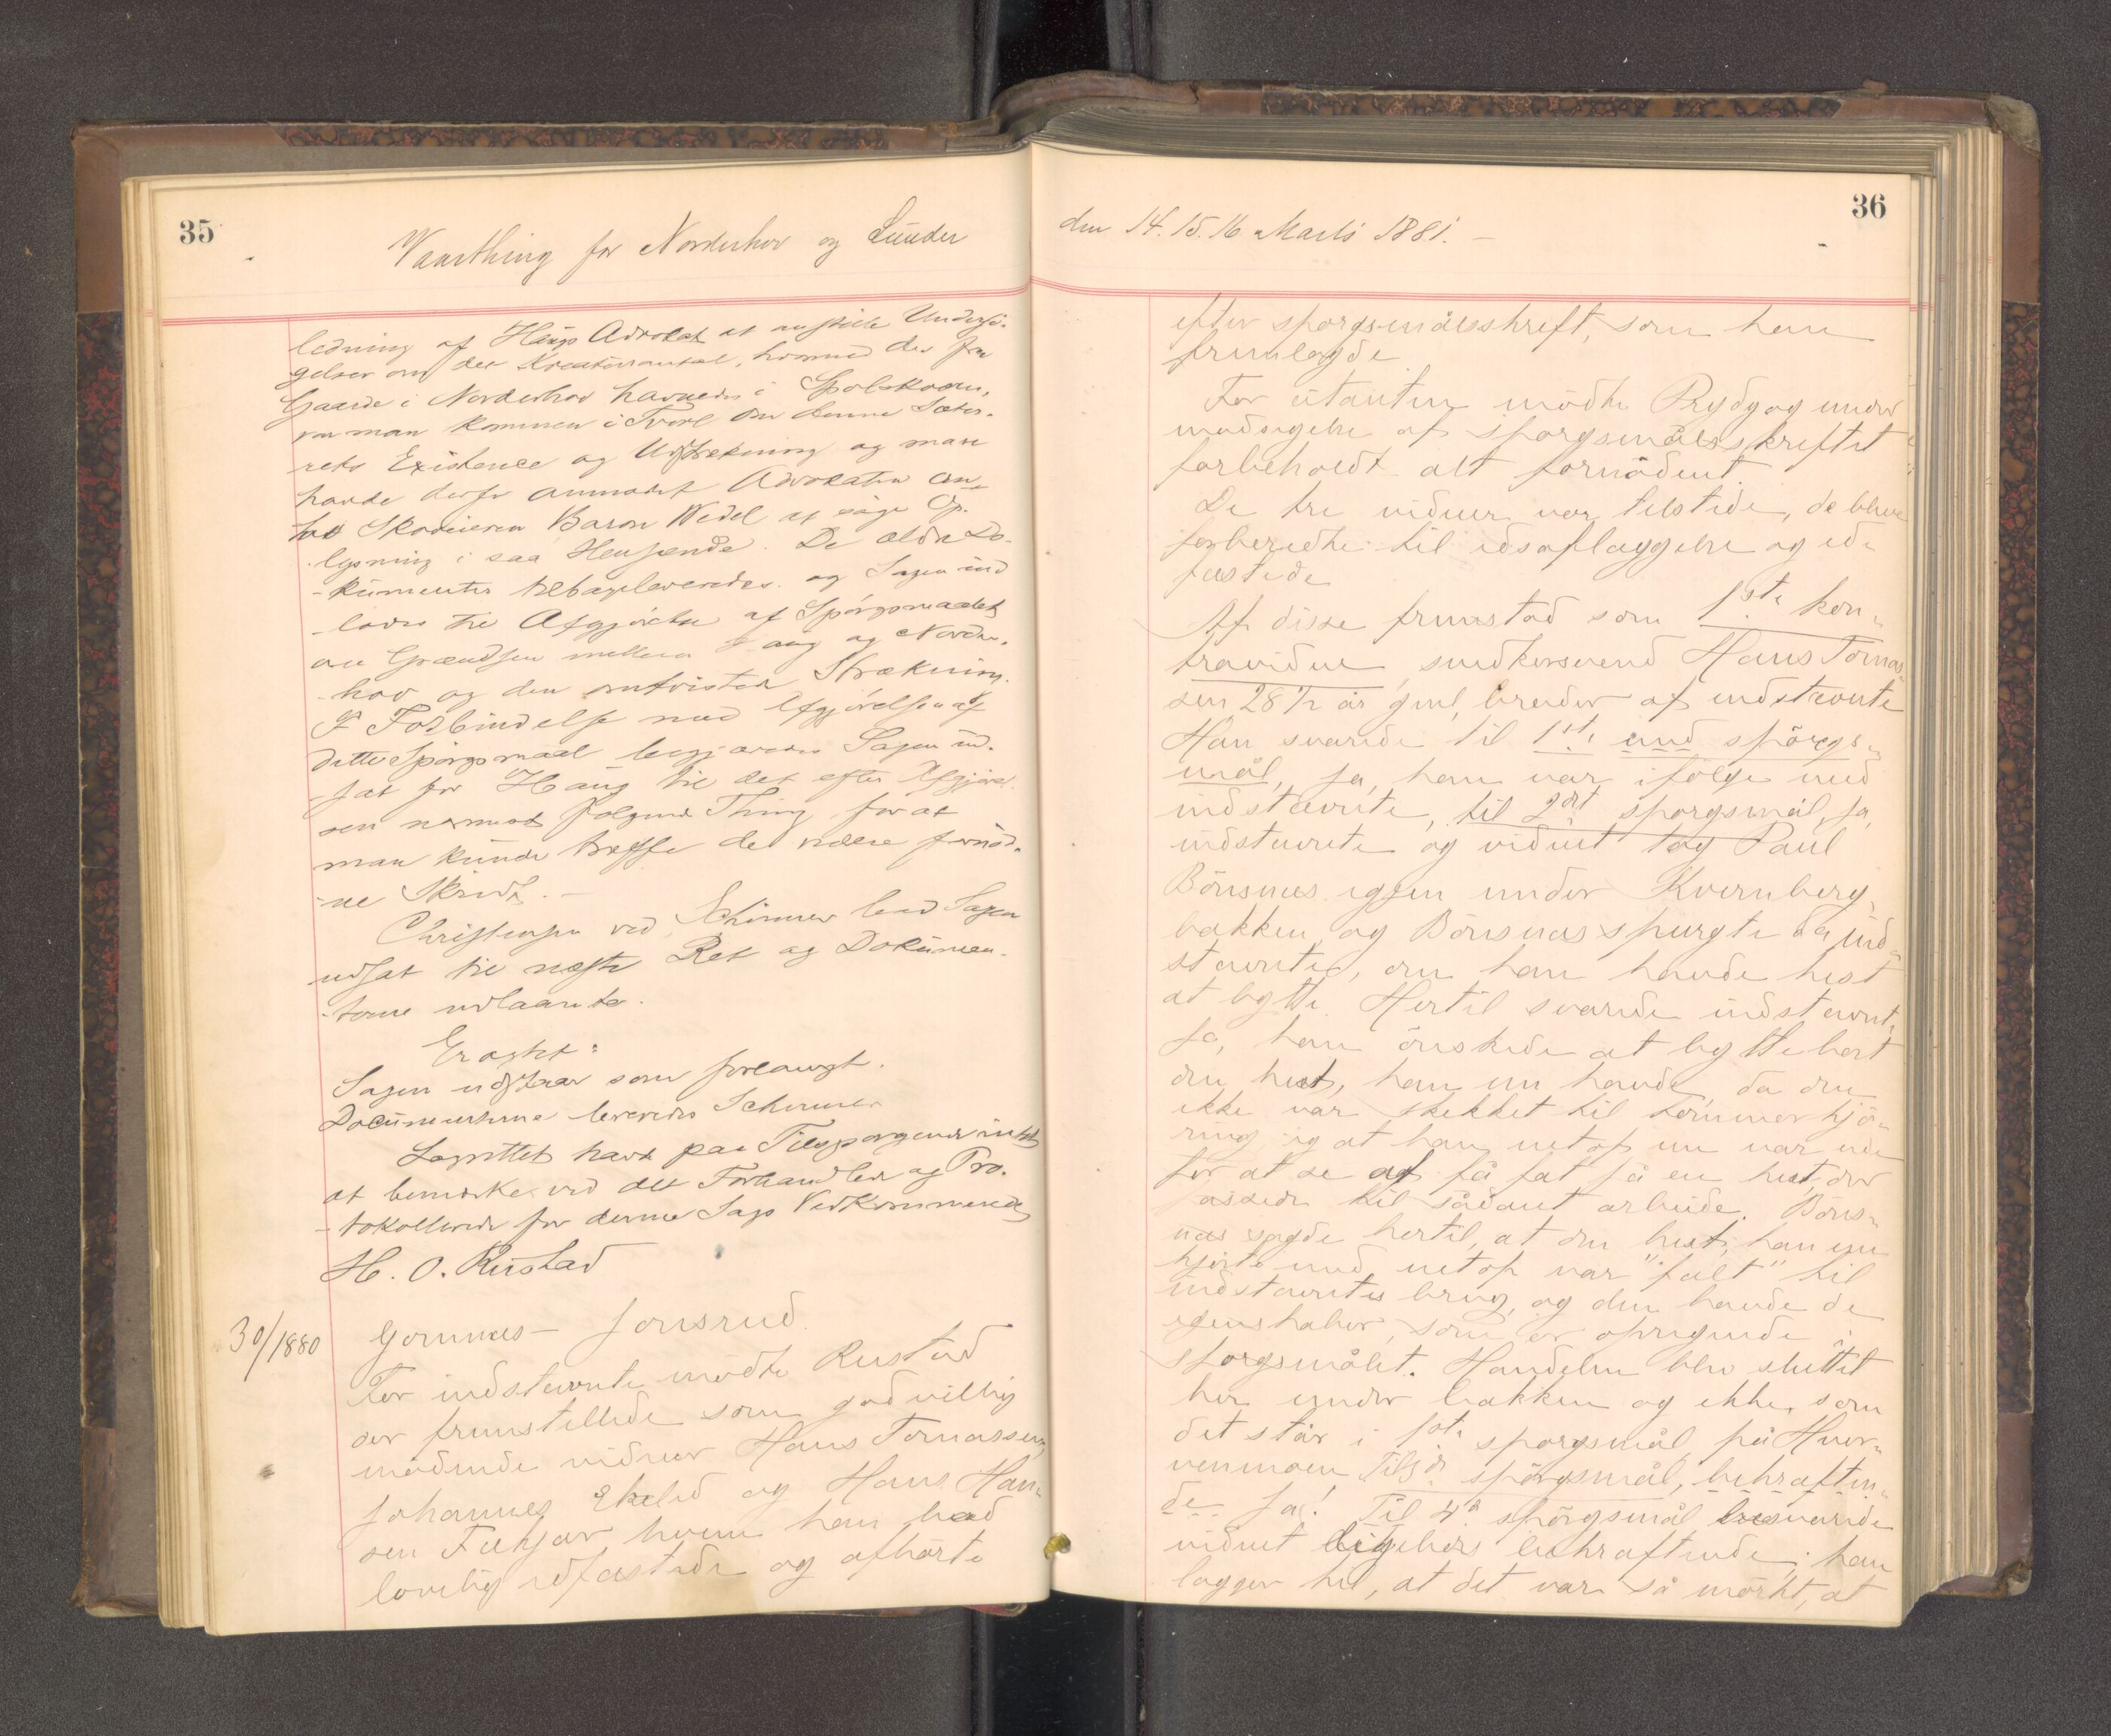 35
Vaarthing for Norderhov og Lunder
ledning af Haugs Advokat at anstille Undersø-
gelser om det Kreaturantal, hvormed der fra
Gaarde i Norderhov havnedes i
var man kommen i Tvivl om denne Sæter-
rets Existence og Udstrækning og man
havde derfor anmodet Advokaten an-
hos Skoveieren Baron Wedel at søge Op-
lysning i saa Henseende. De ældre Do-
-kumenter tilbageleveredes og Sagen ind
-lodes til Afgjørelse af Spørgsmaalet
om Grændsen mellem og Norder-
-hov og den omtvistede Strækning.
I Forbindelse med Afgjørelsen af
dette Spørgsmaal begjæredes Sagen ud-
-sat for Haug til det efter Afgjørel-
sen nærmest følgende Thing for at
man kunde træffe de videre fornød-
-ne Skridt. -
Christensen ved Schirmer bad Sagen
udsat til næste Ret og Dokumen-
-terne udlaante.
Eragtet:
Sagen udstaar som forlangt.
Documenterne leveredes Schirmer
Lagrettet havde paa Tilspørgende intet
at bemærke ved det Forhandlede og Pro-
-tokollerede for denne Sags Vedkommende
H. O. Rustad
30/1880
Gomnæs - Jonsrud
For indstevnte mødte Rustad
der fremstillede som godvillig
mødende vidner Hans Tomassen,
Johannes Ekelid og Hans Han-
sen Fækjær hvem han bad
lovlig edfæstede og afhørte
den 14. 15. 16 Marts 1881. -
36
efter spørgsmålsskrift, som han
fremlagde
For citanten mødte Prydz og under
modsigelse af spørgsmålsskriftet
forbeholdt alt fornødent.
De tre vidner var tilstede, de blev
forberedte til edsaflæggelse og ed-
fæstede
Af disse fremstod som 1ste kon-
travidne, smedkersvend Hans Tomas-
sen 28 1/2 år gml, broder af indstævnte
Han svarede til 1ste und spörgs-
mål, Ja, han var i følge med
indstævnte, til 2det spørgsmål, Ja,
indstevnte og vidnet tog Paul
Bönsnes igjen under Kvernberg-
bakken, og Bönsnæs spurgte da ind-
stævnte, om han havde hest
at bytte. Hertil svarede indstævnt,
Ja, han önskede at bytte bort
den hest, han nu havde, da den
ikke var skikket til tömmerkjö-
ring og at han netop nu var ude
for at se at få fat på en hest, der
passede til sådant arbeide. Böns-
næs sagde hertil, at den hest, han nu
kjörte med netop var "falt" til
indstævntes brug, og den havde de
egenskaber, som er opregnede i
spørgsmålet. Handelen blev sluttet
her under bakken og ikke, som
det står i 1ste spørgsmål på Hver-
venmoen. Til 3de spörgsmål, bekræften-
de Ja! Til 4de spörgsmål besvarede
vidnet ligeledes bekræftende; han
lægger til, at det var så mörkt, at